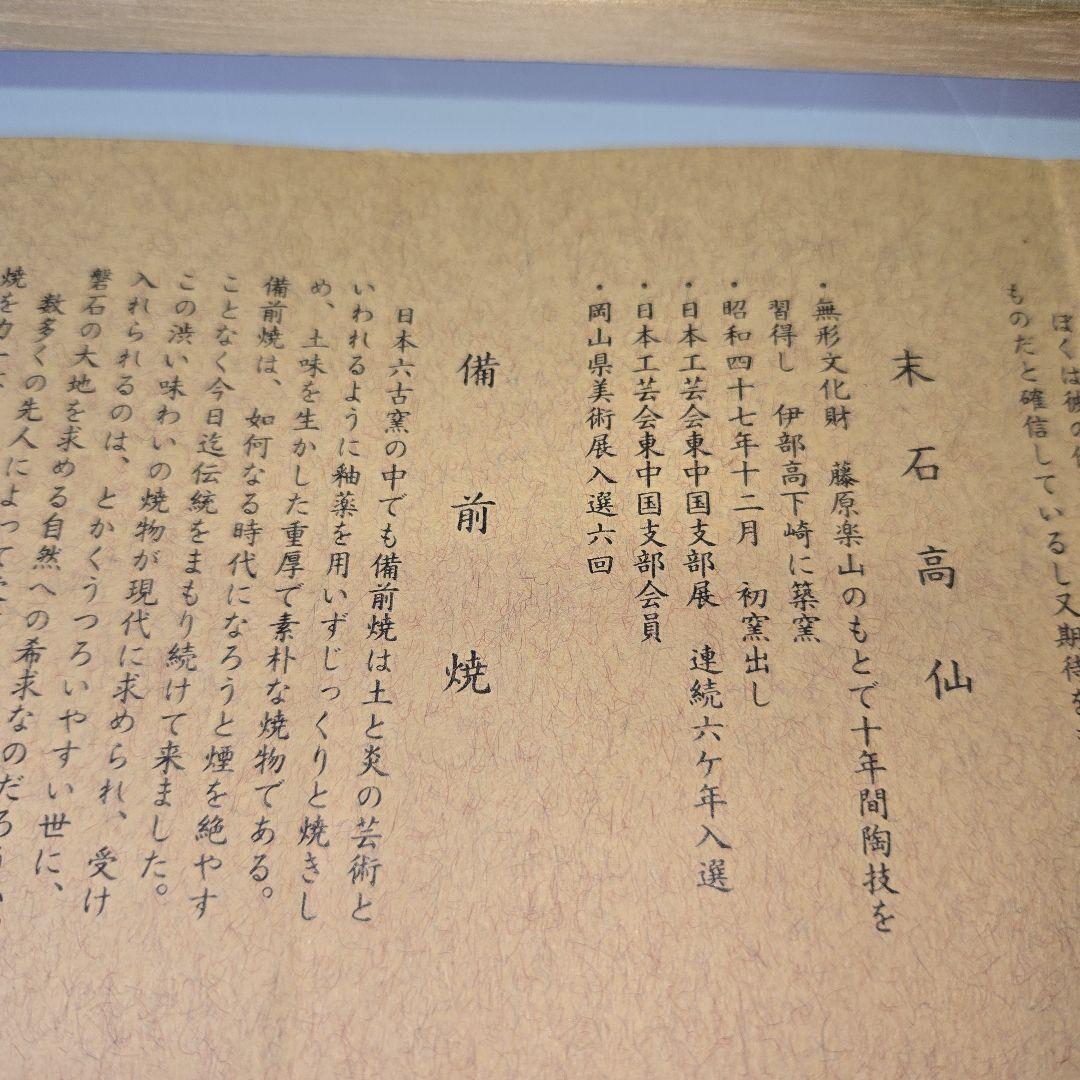 ぼくは彼の
ものだと確信しているし又期待を
末石高仙
・無形文化財　藤原楽山のもとで十年間陶技を
習得し　伊部高下崎に築窯
・昭和四十七年十二月　初窯出し
・日本工芸会東中国支部展　連続六ケ年入選
・日本工芸会東中国支部会員
・岡山県美術展入選六回
備前焼
日本六古窯の中でも備前焼は土と炎の芸術と
いわれるように釉薬を用いずじっくりと焼きし
め、土味を生かした重厚で素朴な焼物である。
備前焼は、如何なる時代になろうと煙を絶やす
ことなく今日迄伝統をまもり続けて来ました。
この渋い味わいの焼物が現代に求められ、受け
入れられるのは、とかくうつろいやすい世に、
磐石の大地を求める自然への希求なのだろうか
数多くの先人によって
焼を